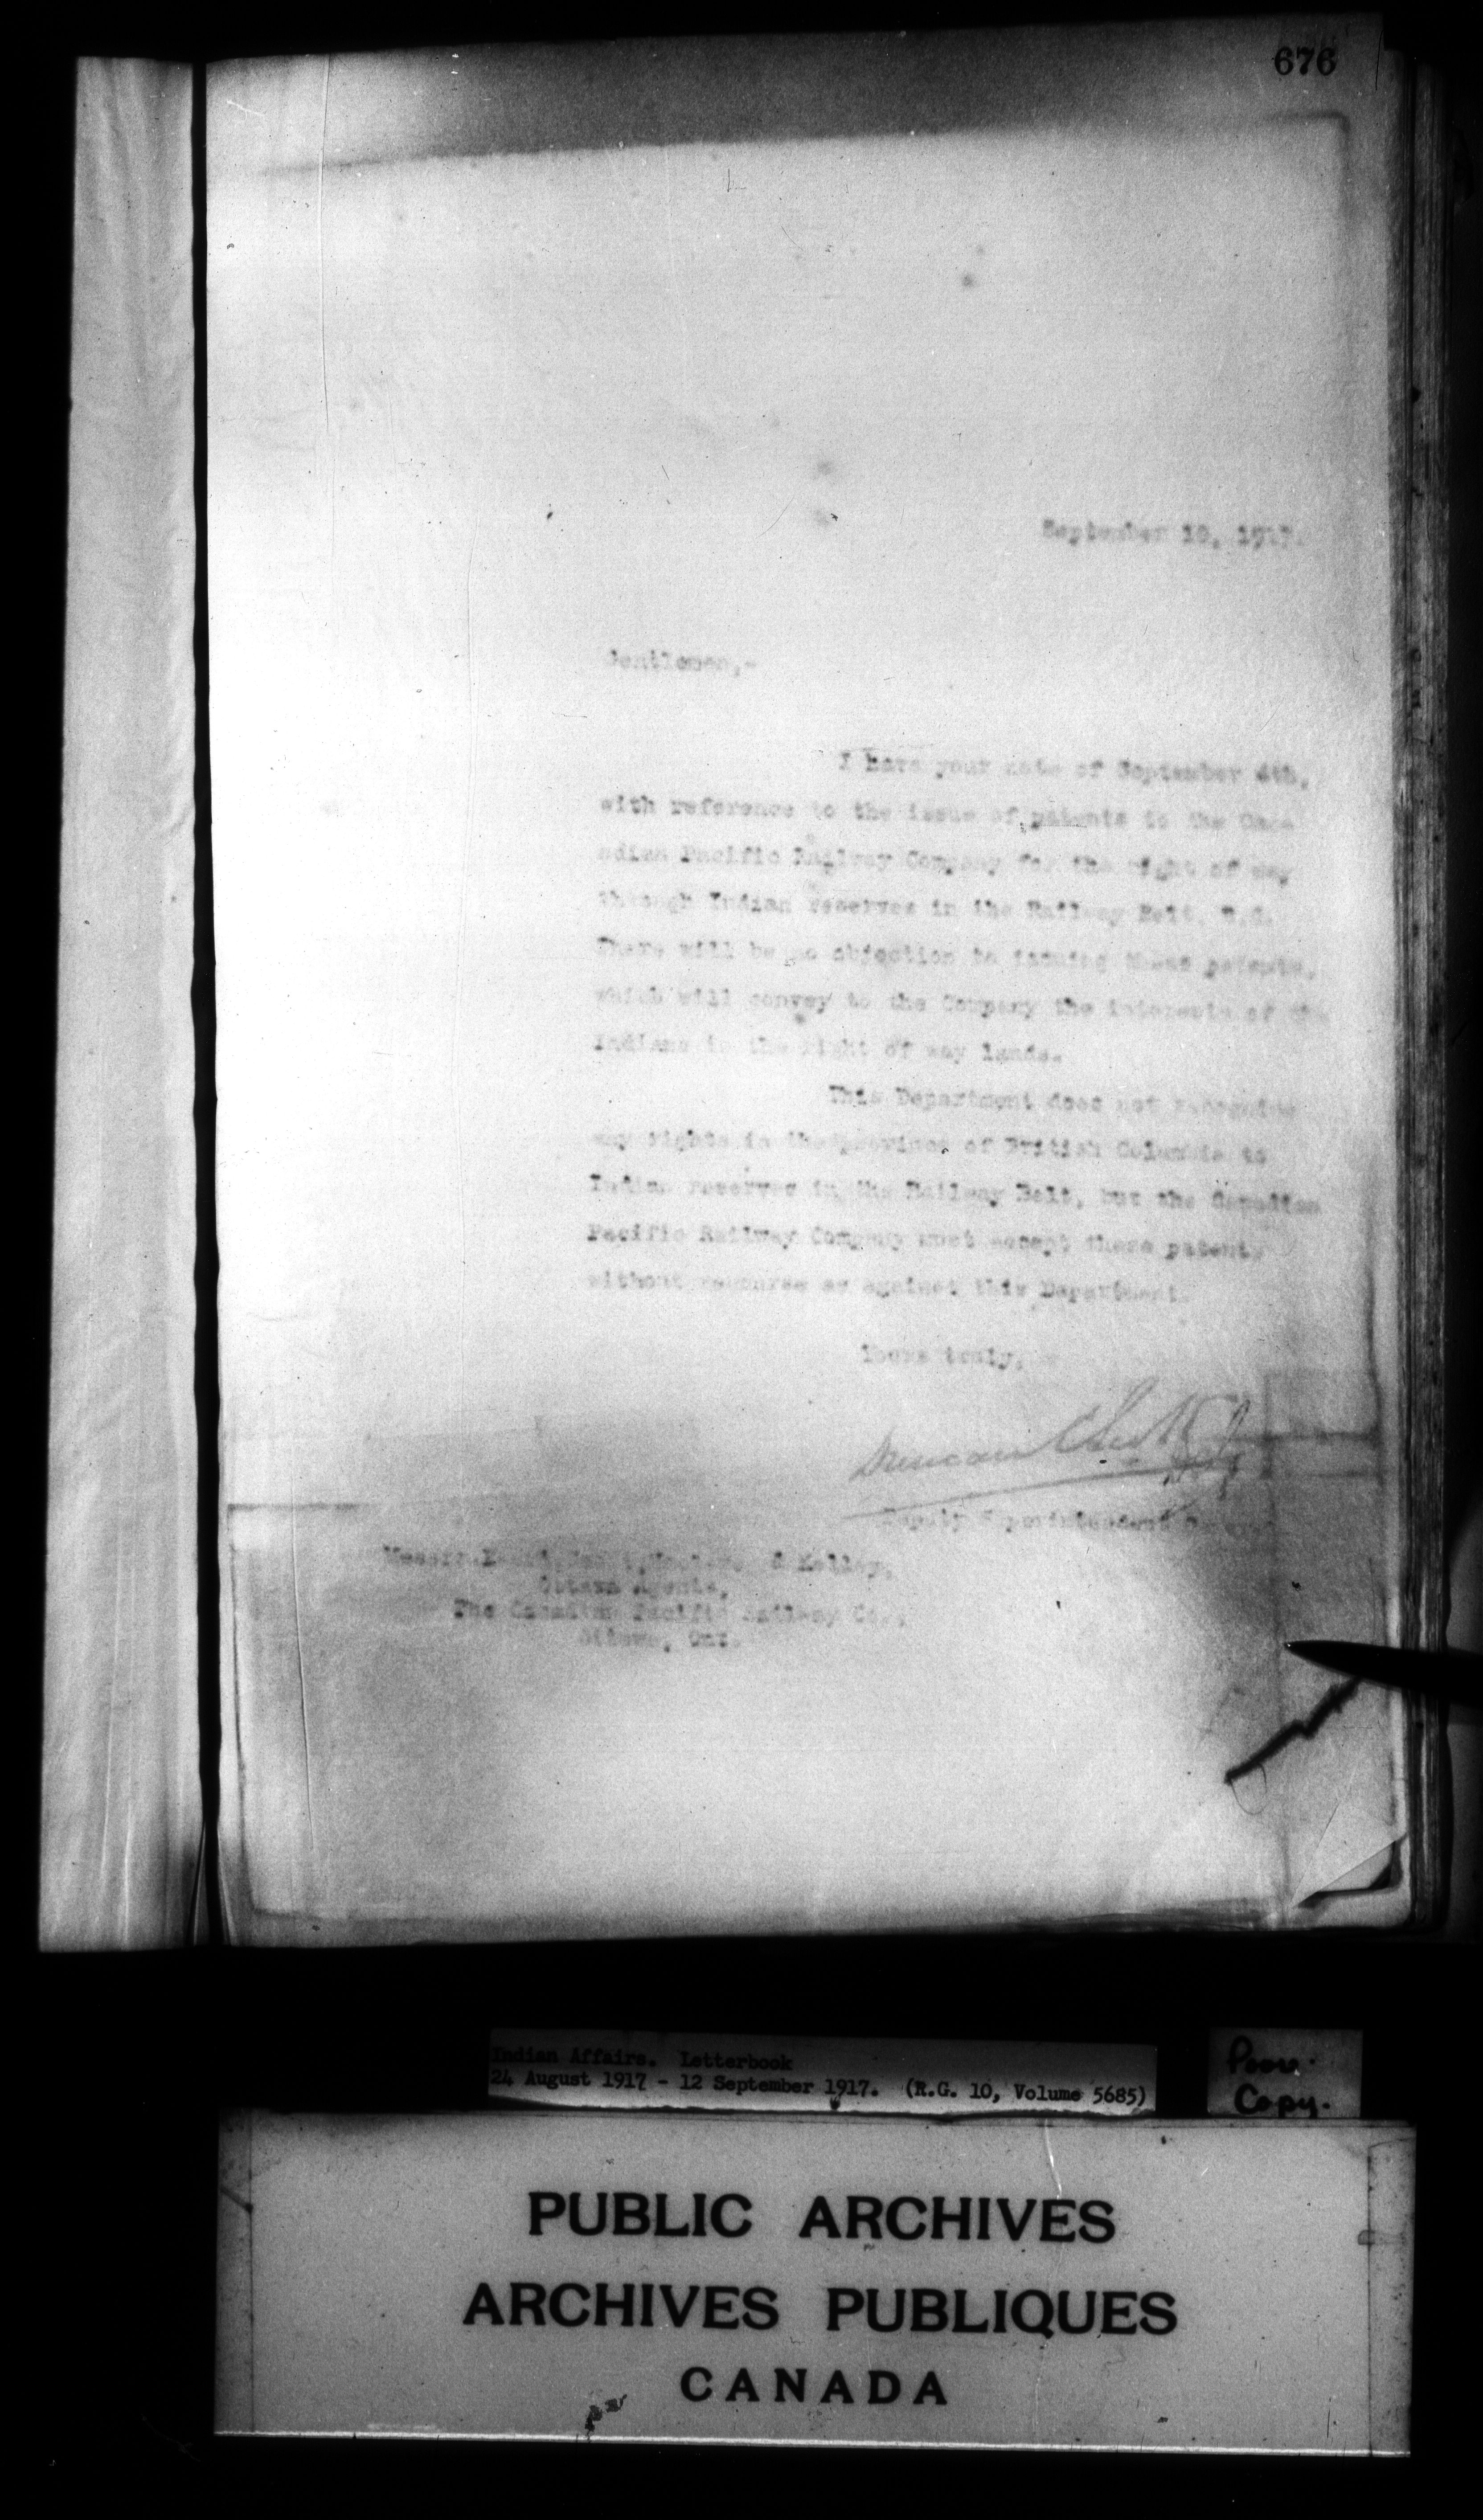 676
September 10, 1917.
Gentlemen,-
I have your note of September 4th,
with reference to the issue of patents to the Can-
adian Pacific Railway Company for the right of way
through Indian reserves in the Railway Belt, B.C.
There will be no objection to issuing these patents,
which will convey to the Company the interests of the
Indians in the right of way lands.
This Department does not recognize
any rights in the province of British Columbia to
Indian reserves in the Railway Belt, but the Canadian
Pacific Railway Company must accept these patents
without recourse as against this Department.
Yours truly,
Duncan C Scott
Deputy Superintendent General
Messrs. & Kelley,
Ottawa Agents,
The Canadian Pacific Railway Co.,
Ottawa, Ont.
Indian Affairs. Letterbook
24 August 1917 - 12 September 1917. (R.G. 10, Volume 5685)
Poor
Copy.
PUBLIC ARCHIVES
ARCHIVES PUBLIQUES
CANADA